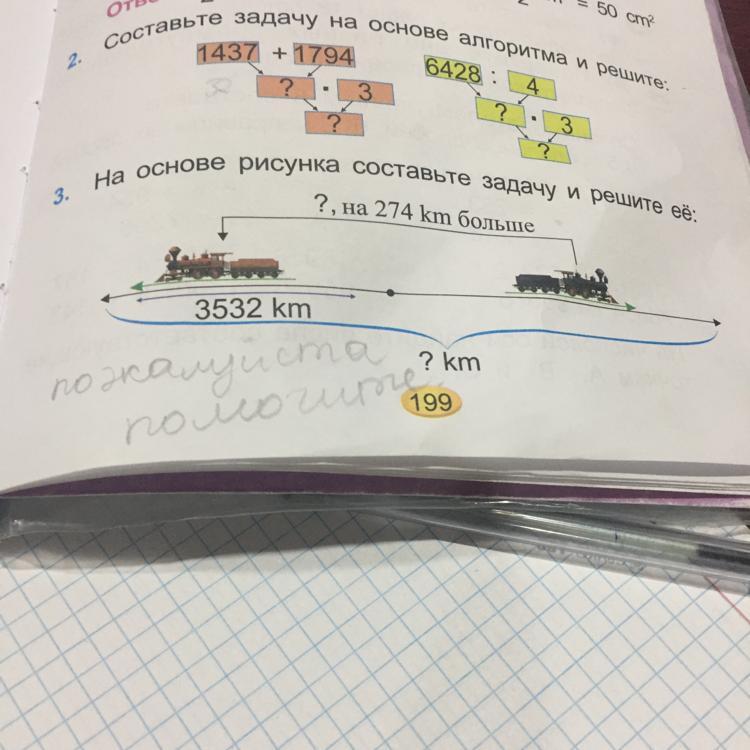 = 50 cm²
2. Составьте задачу на основе алгоритма и решите:
1437 + 1794
? · 3
?
6428 : 4
? · 3
?
3. На основе рисунка составьте задачу и решите её:
?, на 274 km больше
3532 km
? km
пожалуйста
помогите
199